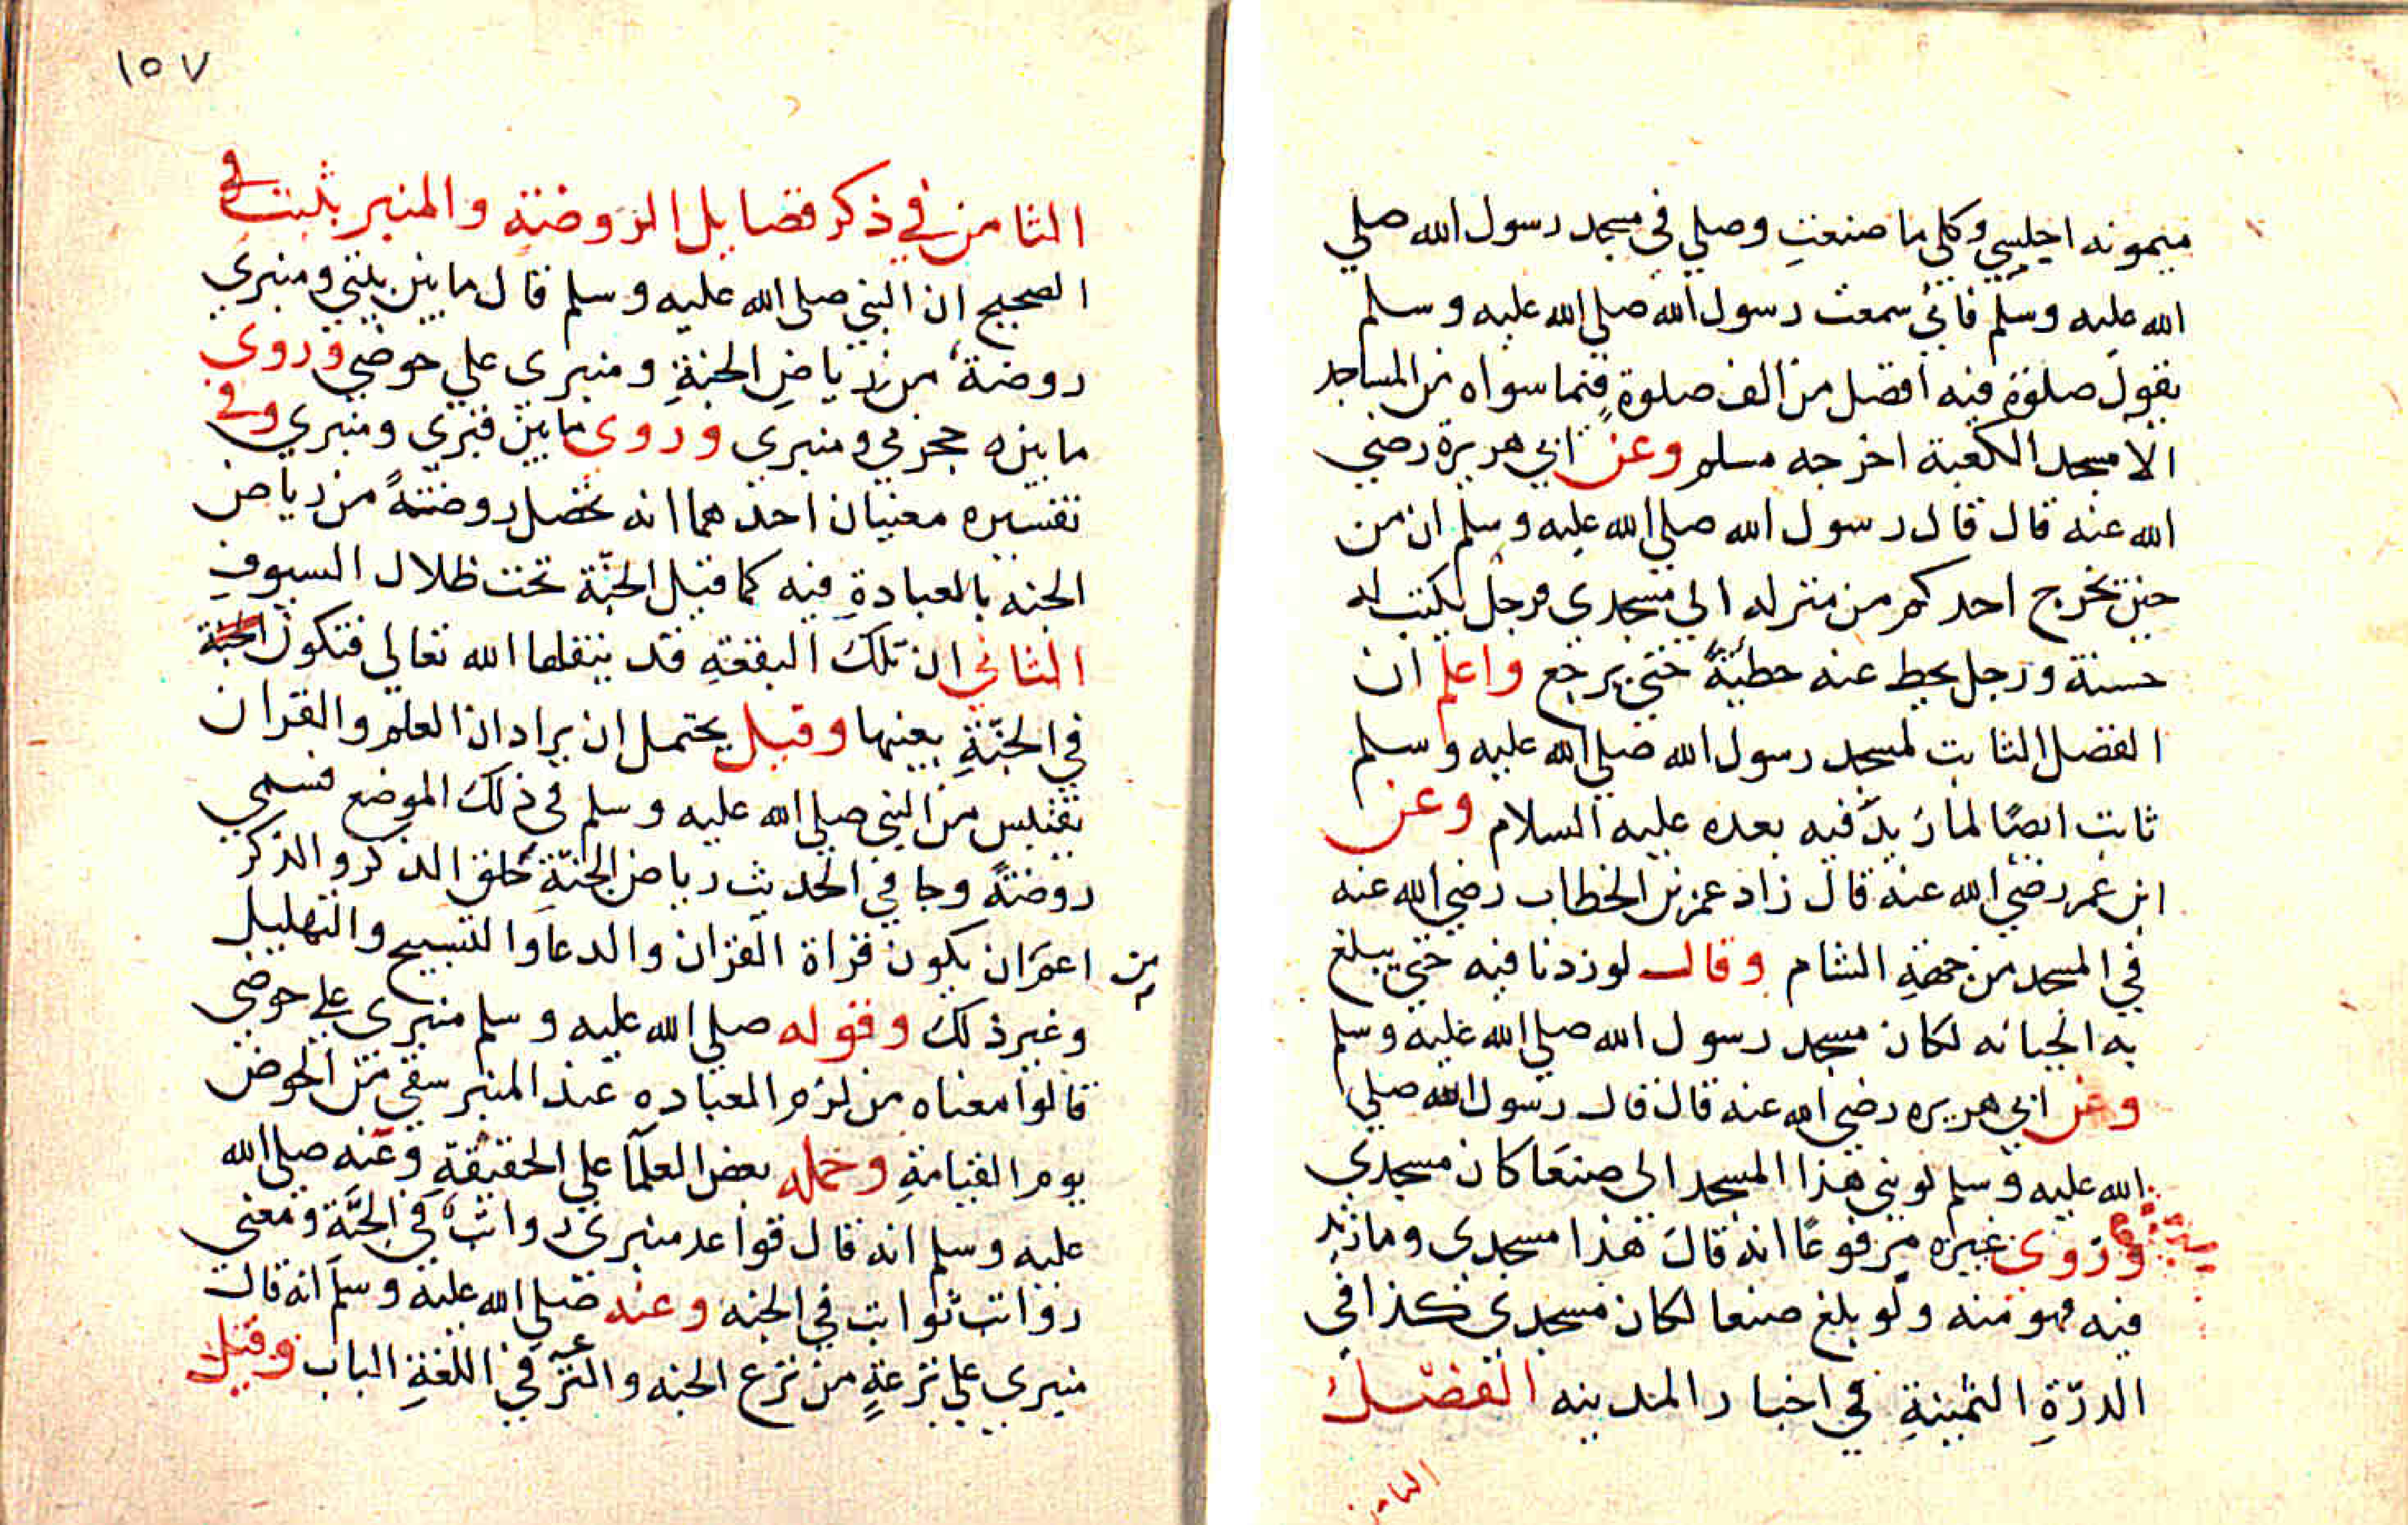 ميمونه اجلسي وكلي ما صنعت وصلي في مسجد رسول الله صلي
الله عليه وسلم فاني سمعت رسول الله صلي الله عليه وسلم
يقول صلوة فيه افضل من الف صلوة فيما سواه من المساجد
الا مسجد الكعبة اخرجه مسلم وعن ابي هريرة رضي
الله عنه قال قال رسول الله صلي الله عليه وسلم ان من
حين يخرج احدكم من منزله الي مسجدي فرجل يكتب له
حسنة ورجل يحط عنه خطيئةً حتي يرجع واعلم ان
الفضل الثابت لمسجد رسول الله صلي الله عليه وسلم
ثابت ايضًا لما زيدَ فيه بعده عليه السلام وعن
ابن عمر رضي الله عنه قال زاد عمر بن الخطاب رضي الله عنه
في المسجد من جهةِ الشام وقال لو زدنا فيه حتي يبلغ
به الجبانه لكان مسجد رسول الله صلي الله عليه وسلم
وعن ابي هريره رضي الله عنه قال قال رسول الله صلي
الله عليه وسلم لو بني هذا المسجد الي صنعا كان مسجدي
وروي غيره مرفوعًا انه قال هذا مسجدي وما زيد
فيه فهو منه ولو بلغ صنعا لكان مسجدي كذا في
الدرّةِ الثمينةِ في اخبار المدينه الفضل
الثامن
١٥٧
الثامن في ذكر فضايل الروضة والمنبر ثبت في
الصحيح ان النبي صلي الله عليه وسلم قال ما بين بيتي ومنبري
روضة من رياضِ الجنةِ ومنبري علي حوضي وروي
ما بين حجرتي ومنبري وروي ما بين قبري ومنبري وفي
تفسيره معنيان احدهما انه تحصل روضةً من رياض
الجنه بالعبادةِ فيه كما قيل الجنّة تحت ظلال السيوف
الثاني ان تلك البقعةِ قد ينقلها الله تعالي فتكون الجنة
في الجنّةِ بعينها وقيل يحتمل ان يراد ان العلم والقران
تقتبس من النبي صلي الله عليه وسلم في ذلك الموضع فسمي
روضةً وجا في الحديث رياض الجنّةِ حلق الذكر والذكر
من اعمّ ان يكون قراة القران والدعا والتسبيح والتهليل
وغير ذلك وقوله صلي الله عليه وسلم منبري علي حوضي
قالوا معناه من لزم العباده عند المنبر سقي من الحوض
يوم القيامةِ وحمله بعض العلمآ علي الحقيقةِ وعنه صلي الله
عليه وسلم انه قال قواعد منبري رواتب في الجنّة ومعني
رواتب ثوابت في الجنه وعنه صلي الله عليه وسلم انه قال
منبري علي ترعةٍ من ترع الجنه والترع في اللغةِ الباب وقيل